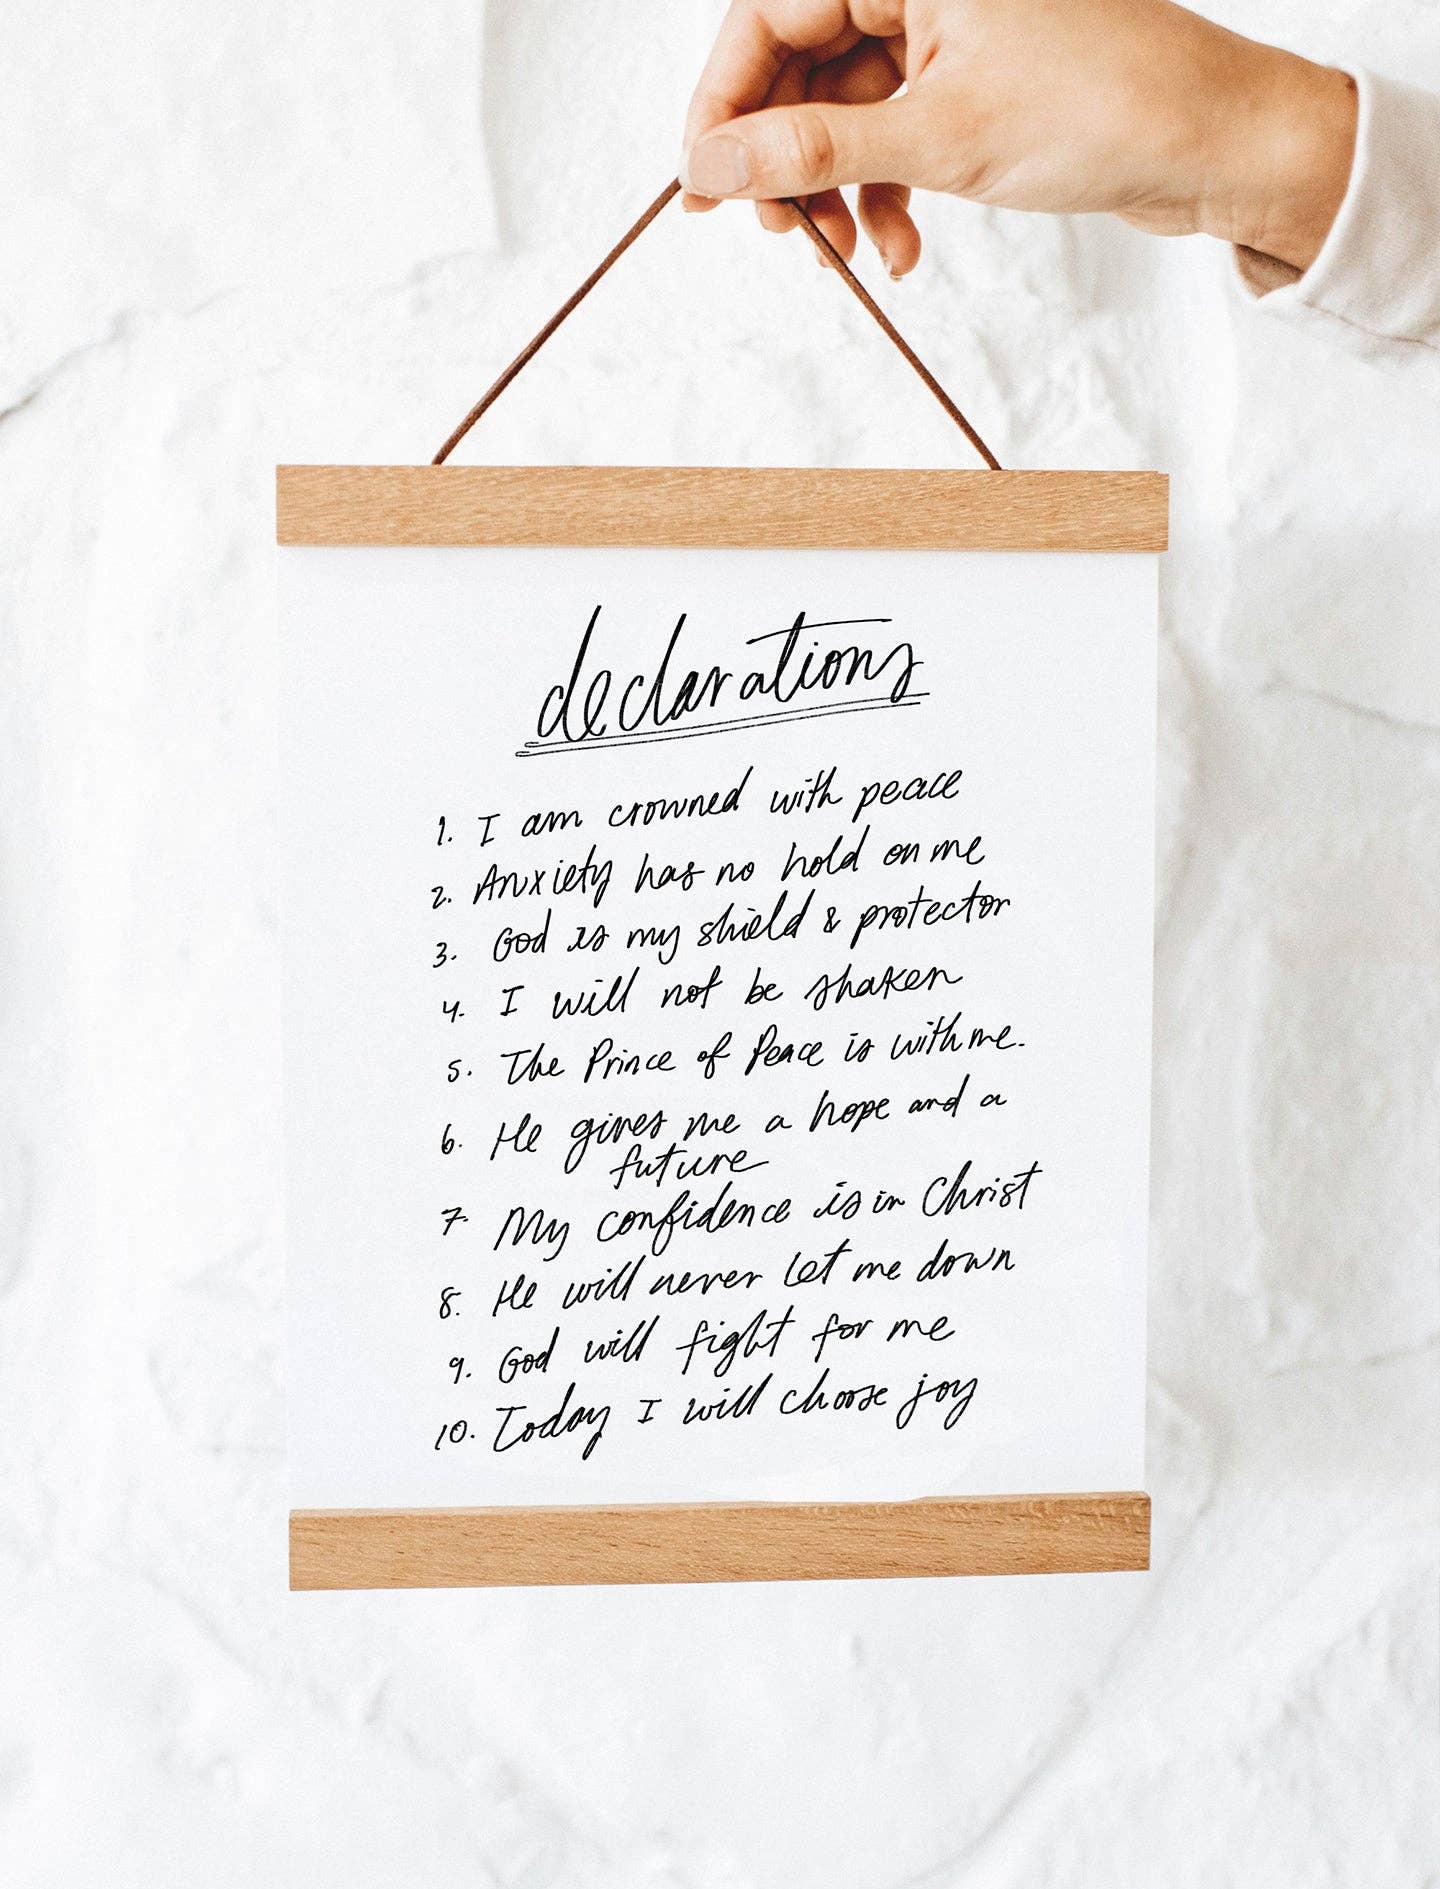 declarations
1. I am crowned with peace
2. Anxiety has no hold on me
3. God is my shield & protector
4. I will not be shaken
5. The Prince of Peace is with me.
6. He gives me a hope and a
future
7. My confidence is in Christ
8. He will never let me down
9. God will fight for me
10. Today I will choose joy